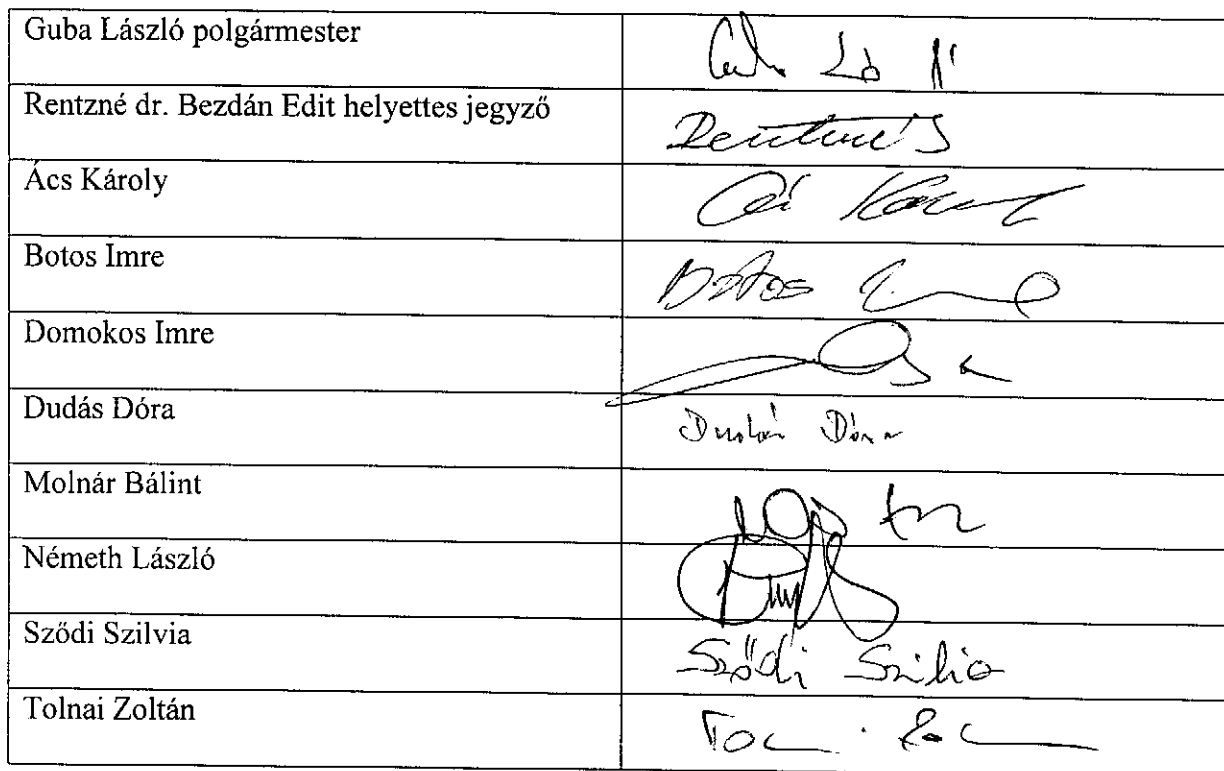 Guba László polgármester
Rentzné dr. Bezdán Edit helyettes jegyző
Ács Károly
Botos Imre
Botos
Domokos Imre
Dudás Dóra
Dudás Dóra
Molnár Bálint
Németh László
Sződi Szilvia
Sződi Szilvia
Tolnai Zoltán